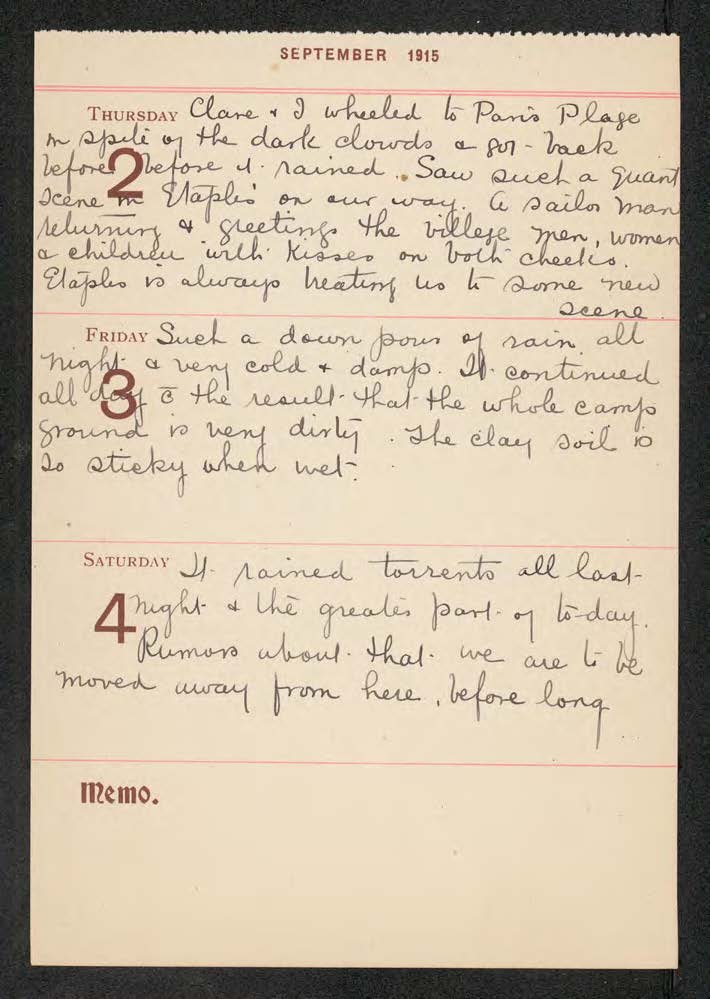 SEPTEMBER 1915
THURSDAY Clare & I wheeled to Paris Plage
in spite of the dark clowds & got back
before 2 before it rained. Saw such a quant
scene in Etaples on our way. A sailor man
returning & greetings the village men, women
& children with kisses on both cheeks.
Etaples is always treating us to some new
scene.
FRIDAY Such a down pour of rain all
night & very cold & damp. It continued
3
all day c̄ the result that the whole camp
ground is very dirty. The clay soil is
so sticky when wet.
SATURDAY It rained torrents all last
4 night & the greater part of to-day.
Rumors about that we are to be
moved away from here, before long
Memo.